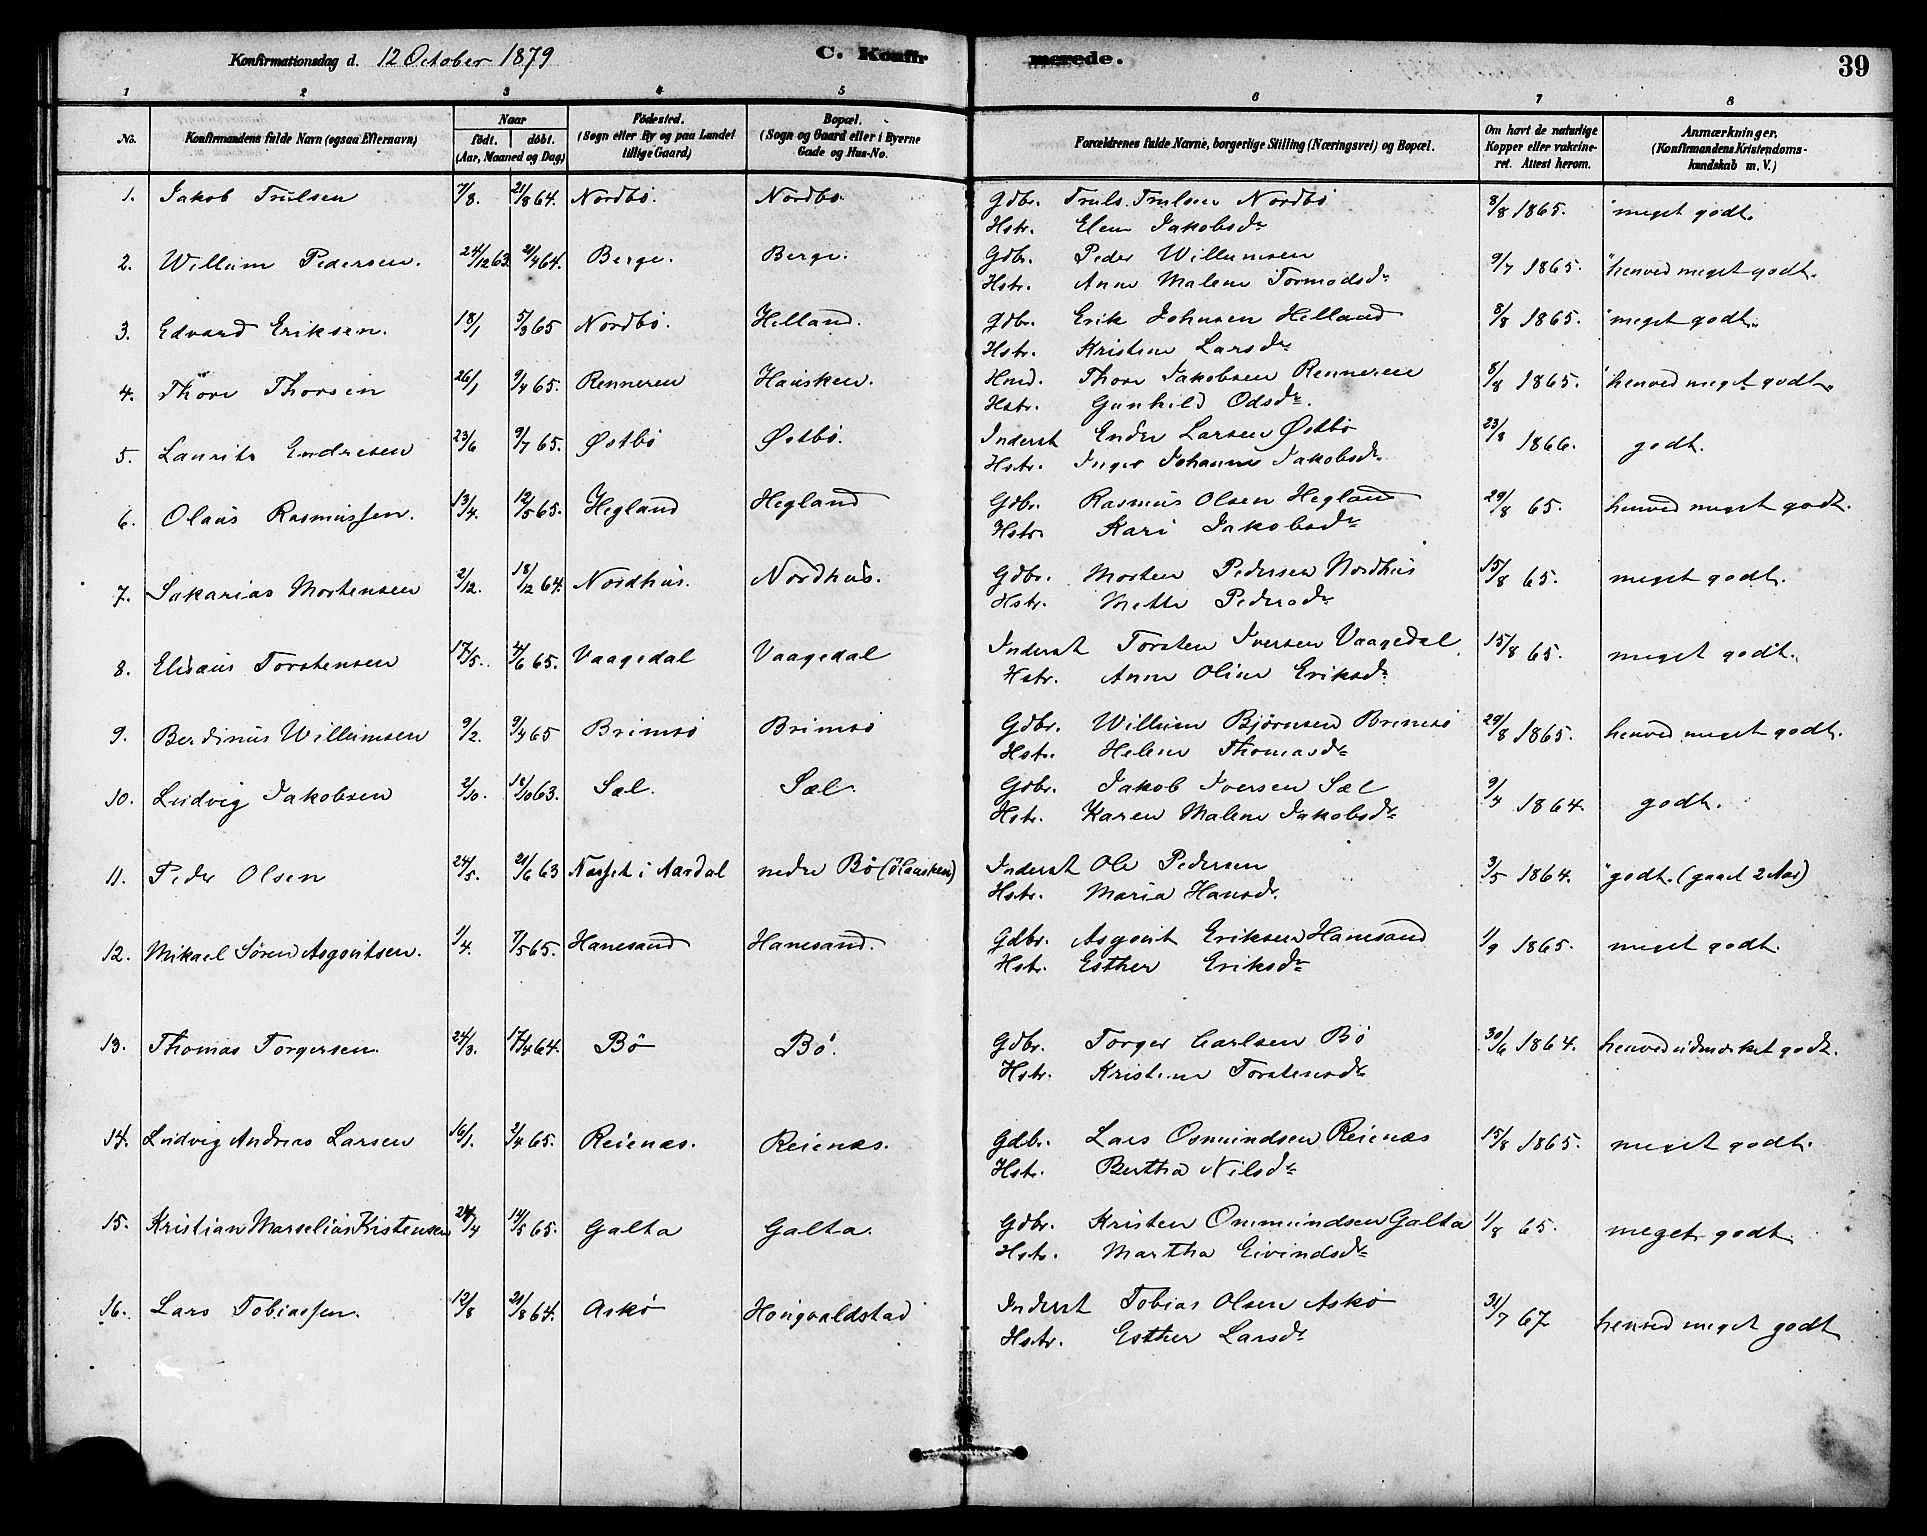 Konfirmationsdag d. 12 October 1879 C. Konfirmerede. 39
1 2 3 4 5 6 7 8
No. Konfirmandens fulde Navn (ogsaa Efternavn) Naar født. døbt. (Aar, Maaned og Dag) Födested. (Sogn eller By og paa Landet tillige Gaard) Bopæl. (Sogn og Gaard eller i Byerne Gade og Hus-No. Forældrenes fulde Navne, borgerlige Stilling (Næringsvei) og Bopæl. Om havt de naturlige Kopper eller vaccineret. Attest herom. Anmærkninger. (Konfirmandens Kristendomskundskab m. V.)
1. Jakob Trulsen 7/8. 21/8 64. Nordbö. Nordbö. Gdbr. Truls Trulsen Nordbö 8/8 1865. meget godt.
Hstr. Elen Jakobsdr
2. Willum Pedersen. 24/12 63. 2/4 64. Berge. Berge. Gdbr. Peder Willumsen 9/7 1865. henved meget godt.
Hstr. Anne Malene Tormodsdr
3. Edvard Eriksen. 18/1 5/3 65 Nordbö. Helland. Gdbr. Erik Johnsen Helland 8/8 1865. meget godt.
Hstr. Kristine Larsdr
4. Thore Thorsen 26/1 9/4 65. Renneren Hausken. Hmd. Thore Jakobsen Renneren 8/8 1865. henved meget godt.
Hstr. Gunhild Odsdr.
5. Laurits Endresen 23/6 9/7 65. Østbö Østbö. Inderst Endre Larsen Østbö 23/8 1866. godt.
Hstr. Inger Johanne Jakobsdr
6. Olaus Rasmussen. 13/4. 12/5 65. Hegland Hegland Gdbr. Rasmus Olsen Hegland 29/8 65. henved meget godt.
Hstr. Kari Jakobsdr
7. Sakarias Mortensen 2/12. 18/12 64. Nordhus. Nordhus. Gdbr. Morten Pedersen Nordhus 15/8 65. meget godt.
Hstr. Mette Pedersdr
8. Elisæus Torstensen 17/5. 4/6 65. Vaagedal Vaagedal Inderst Torsten Iversen Vaagedal. 15/8 65. meget godt.
Hstr. Anne Oline Eriksdr
9. Berdinus Willumsen 9/2. 9/4 65 Brimsö Brimsö Gdbr. Willum Bjørnsen Brimsö 29/8 1865. henved meget godt.
Hstr. Helene Thomasdr
10. Ludvig Jakobsen 2/10. 18/10 63. Sæl. Sæl. Gdbr. Jakob Iversen Sæl 9/7 1864. godt.
Hstr. Karen Malene Jakobsdr
11. Peder Olsen 24/5. 21/6 63 Næsset i Aardal nedre Bö (Hausken) Inderst Ole Pedersen 3/5 1864. godt. (gaaet 2 Aar)
Hstr. Maria Hansdr.
12. Mikael Sören Asgoutsen. 1/4. 7/5 65. Hanesand Hanesand. Gdbr. Asgout Eriksen Hanesand 1/9 1865. meget godt.
Hstr. Esther Eriksdr
13. Thomas Torgersen. 24/3. 17/4 64. Bö Bö. Gdbr. Torger Carlsen Bö 30/6 1864. henved udmærket godt.
Hstr. Kristine Torstensdr
14. Ludvig Andreas Larsen 16/1. 2/4 65. Reienæs. Reienæs. Gdbr. Lars Osmundsen Reienæs 15/8 1865. meget godt.
Hstr. Bertha Nilsdr
15. Kristian Marselius Kistensen 24/4 14/5 65. Galta Galta. Gdbr. Kristen Ommundsen Galta 1/8 65. meget godt.
Hstr. Martha Eivindsdr
16. Lars Tobiassen. 12/8 21/8 64. Askö Hougvaldstad Inderst Tobias Olsen Askö 31/7 67 henved meget godt
Hstr. Esther Larsdr